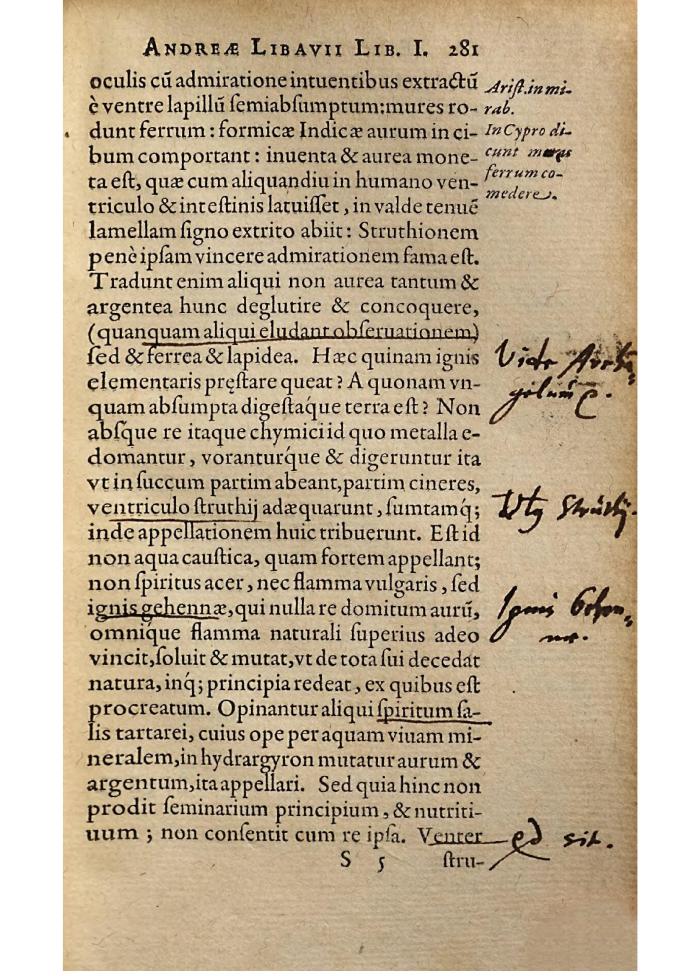 ANDREÆ LIBAVII LIB. I. 281
oculis cū admiratione intuentibus extractū
è ventre lapillū ſemiabſumptum: mures ro-
dunt ferrum: formicæ Indicæ aurum in ci-
bum comportant: inuenta & aurea mone-
ta eſt, quæ cum aliquandiu in humano ven-
triculo & inteſtinis latuiſſet, in valde tenuē
lamellam ſigno extrito abiit: Struthionem
penè ipſam vincere admirationem fama eſt.
Tradunt enim aliqui non aurea tantum &
argentea hunc deglutire & concoquere,
(quanquam aliqui eludant obſeruationem)
ſed & ferrea & lapidea. Hæc quinam ignis
elementaris pręſtare queat? A quonam vn-
quam abſumpta digeſtáque terra eſt? Non
abſque re itaque chymici id quo metalla e-
domantur, voranturq́ue & digeruntur ita
vt in ſuccum partim abeant, partim cineres,
ventriculo ſtruthij adæquarunt, ſumtamq́;
inde appellationem huic tribuerunt. Eſt id
non aqua cauſtica, quam fortem appellant;
non ſpiritus acer, nec flamma vulgaris, ſed
ignis gehennæ, qui nulla re domitum aurū,
omnique flamma naturali ſuperius adeo
vincit, ſoluit & mutat, vt de tota ſui decedat
natura, inq́; principia redeat, ex quibus eſt
procreatum. Opinantur aliqui ſpiritum ſa-
lis tartarei, cuius ope per aquam viuam mi-
neralem, in hydrargyron mutatur aurum &
argentum, ita appellari. Sed quia hinc non
prodit ſeminarium principium, & nutriti-
uum; non conſentit cum re ipſa. Venter
S 5 ſtru-
Ariſt. in mi-
rab.
In Cypro di-
cunt mures
ferrum co-
medere.
Vide
Ignis Gehen-
næ.
sit.